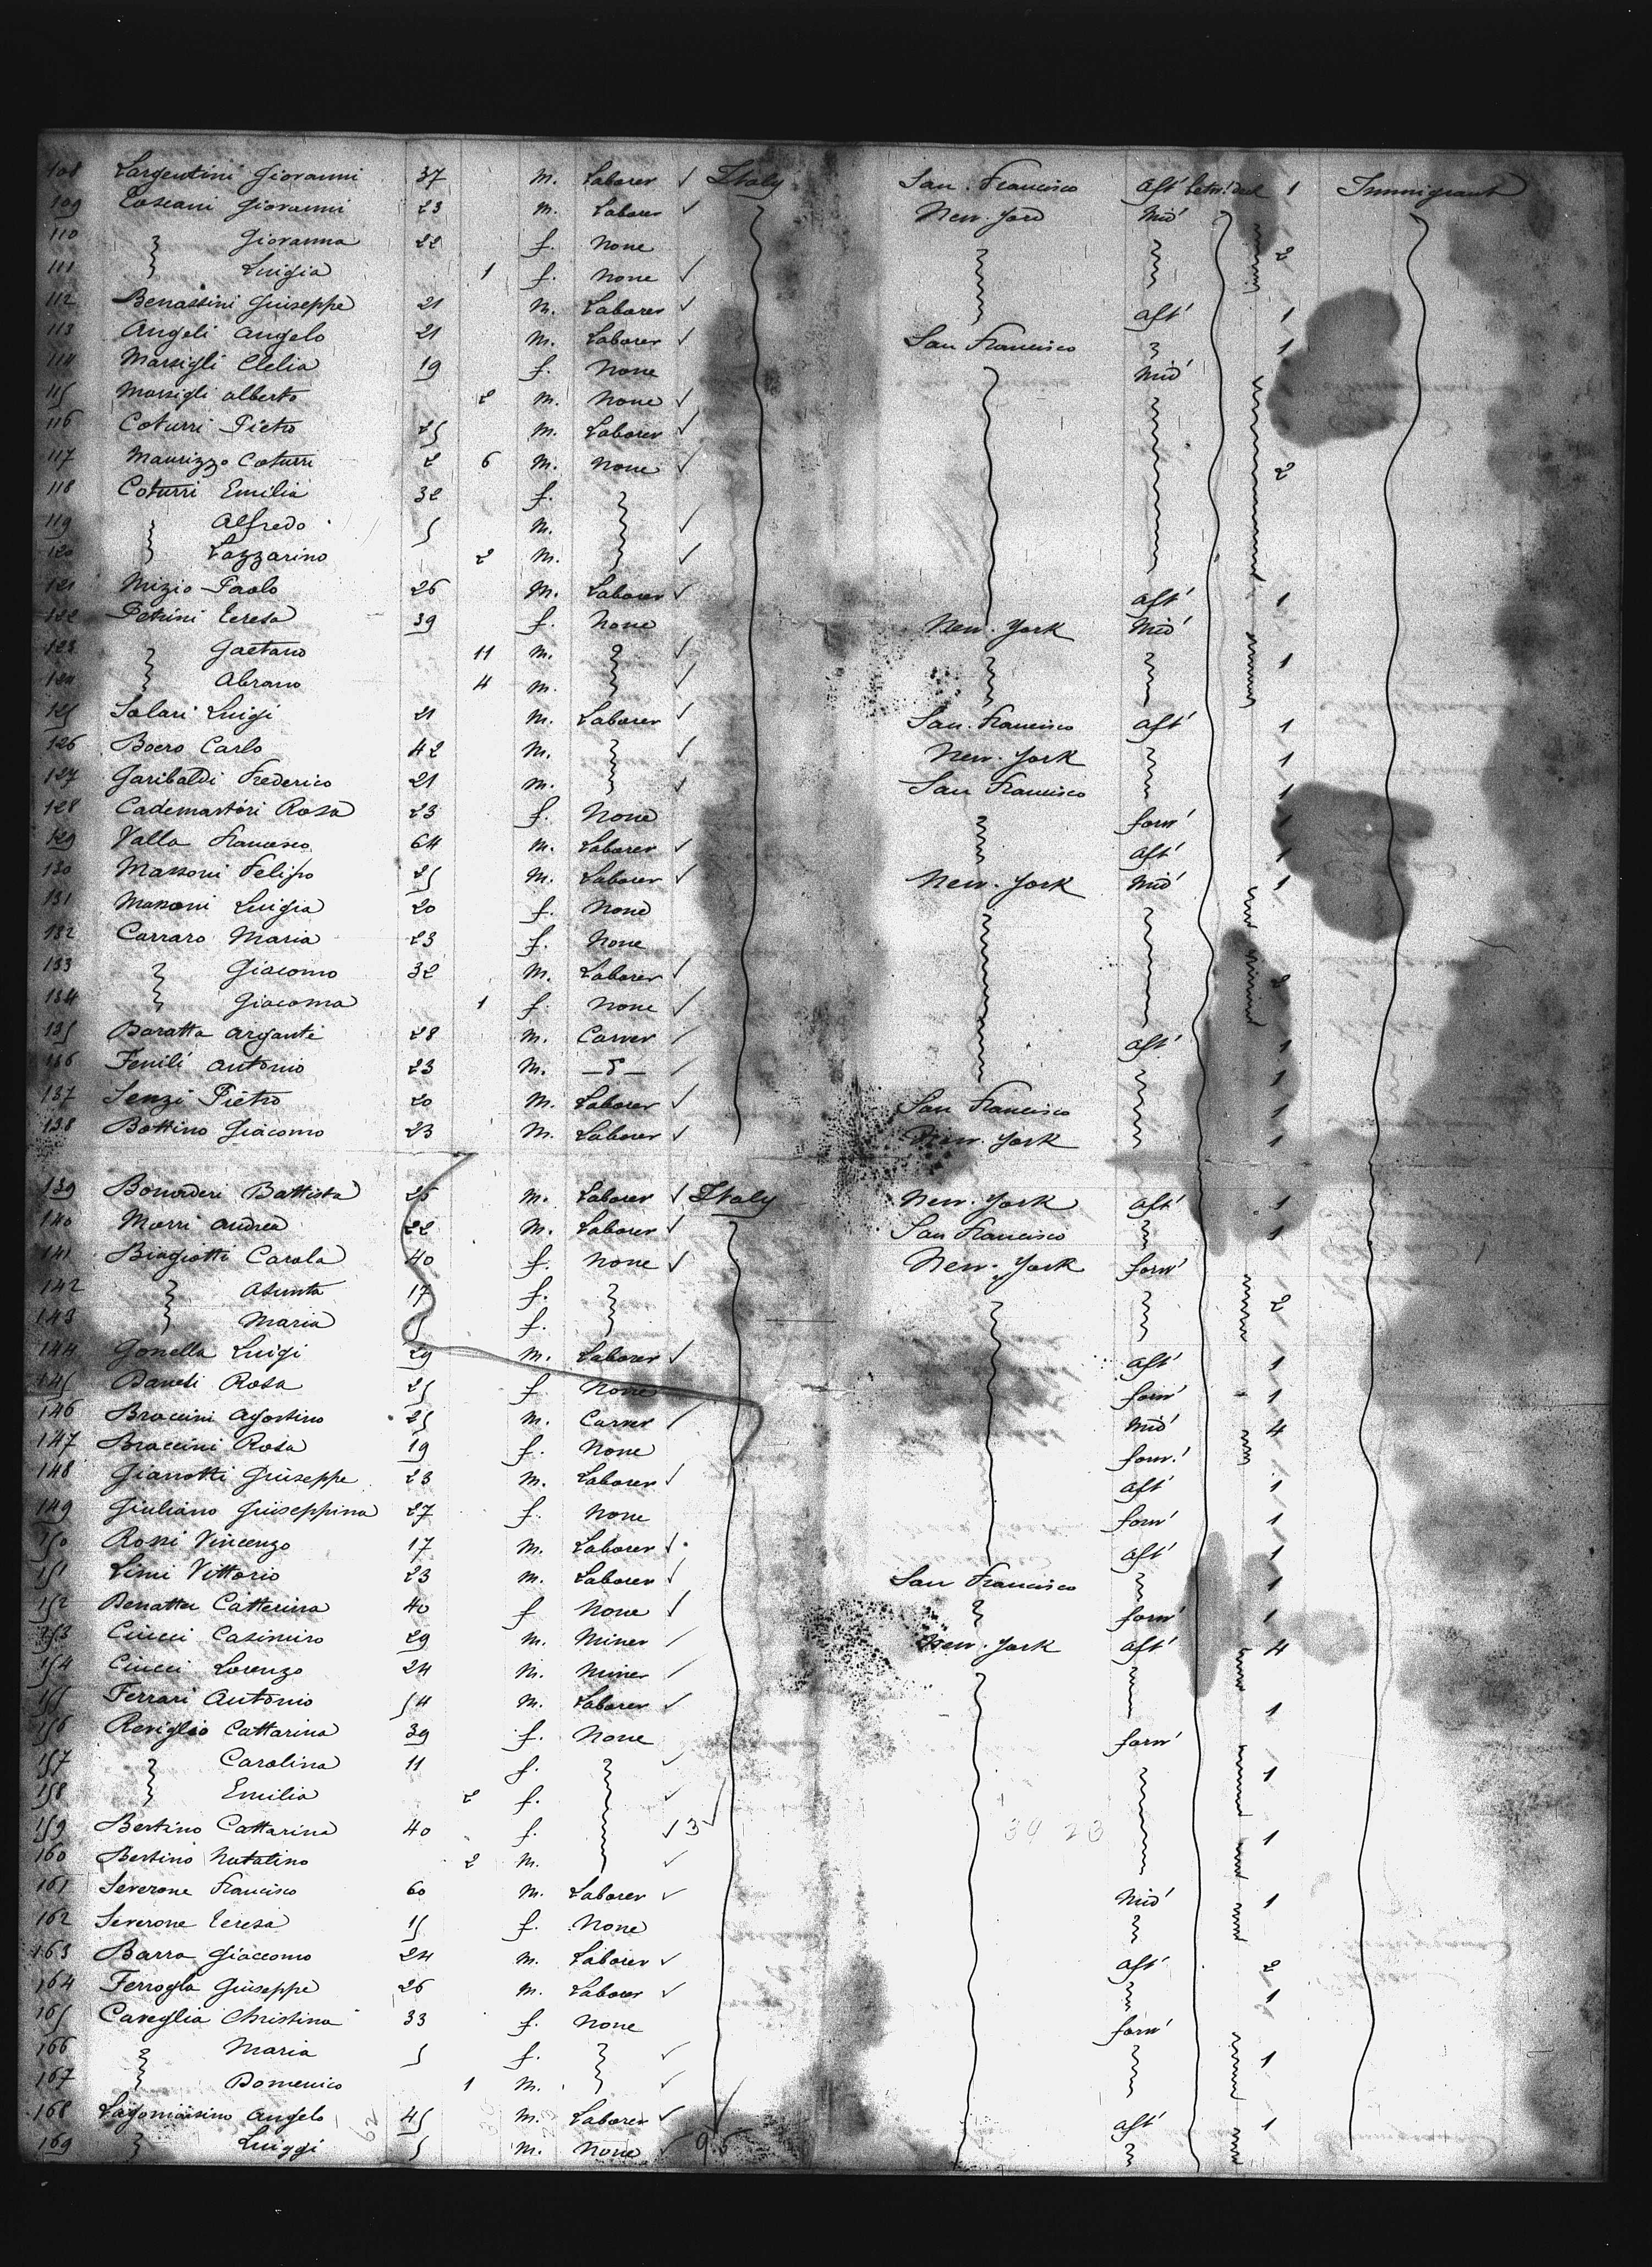 108 Largentini Giovanni 37 M. Laborer ✓ Italy San Francisco aft' betw. deck 1 Immigrant
109 Toscani Giovanni 23 M. Laborer ✓ New-York Mid'
110 " Giovanna 22 f. None 2
111 " Luigia 1 f. None ✓
112 Benassini Giuseppe 21 M. Laborer ✓ aft' 1
113 Angeli Angelo 21 M. Laborer ✓ San Francisco " 1
114 Marsigli Clelia 19 f. None Mid'
115 Marsigli Alberto 2 M. None ✓
116 Coturri Pietro 25 M. Laborer ✓
117 Maurizzo Coturri 2 6 M. None ✓ 2
118 Coturri Emilia 32 f. "
119 " Alfredo 5 M. " ✓
120 " Lazzarino 2 M. " ✓
121 Mizio Paolo 26 M. Laborer ✓ aft' 1
122 Petrini Teresa 39 f. None New-York Mid'
123 " Gaetano 11 M. " ✓ 1
124 " Abramo 4 M. " ✓
125 Solari Luigi 21 M. Laborer ✓ San Francisco aft' 1
126 Boero Carlo 42 M. " ✓ New-York " 1
127 Garibaldi Frederico 21 M. " ✓ San Francisco " 1
128 Cademartori Rosa 23 f. None forw' 1
129 Valla Francesco 64 M. Laborer ✓ aft' 1
130 Massoni Felipo 25 M. Laborer ✓ New-York Mid' 1
131 Massoni Luigia 20 f. None
132 Carraro Maria 23 f. None
133 " Giacomo 32 M. Laborer ✓ 2
134 " Giacoma 1 f. None ✓
135 Baratta Arganti 28 M. Carver ✓ aft' 1
136 Fenili Antonio 23 M. " ✓ " 1
137 Senzi Pietro 20 M. Laborer ✓ San Francisco " 1
138 Bottino Giacomo 23 M. Laborer ✓ New-York " 1
139 Bonaderi Battista 25 M. Laborer ✓ Italy New-York aft' 1
140 Morri Andrea 22 M. Laborer ✓ San Francisco " 1
141 Biagiotti Carola 40 f. None ✓ New-York forw'
142 " Asunta 17 f. " 2
143 " Maria 15 f. "
144 Gonella Luigi 29 M. Laborer ✓ aft' 1
145 Banesi Rosa 25 f. None forw' 1
146 Braccini Agostino 25 M. Carver ✓ Mid' 4
147 Braccini Rosa 19 f. None forw'
148 Gianotti Giuseppe 23 M. Laborer ✓ aft' 1
149 Giuliano Giuseppina 27 f. None forw' 1
150 Rossi Vincenzo 17 M. Laborer ✓ aft' 1
151 Limi Vittorio 23 M. Laborer ✓ San Francisco " 1
152 Catterina 40 f None ✓ " forw' 1
153 Ciucci Casimiro 29 M. Miner ✓ New-York aft' 4
154 Ciucci Lorenzo 24 M. Miner ✓
155 Ferrari Antonio 54 M. Laborer ✓ 1
156 Reviglio Cattarina 39 f. None forw'
157 " Carolina 11 f. " ✓ 1
158 " Emilia 2 f. " ✓
159 Bertino Cattarina 40 f. " ✓ 3 1
160 Bertino Natalino 2 M. " ✓
161 Severone Francisco 60 M. Laborer ✓ Mid' 1
162 Severone Teresa 15 f. None "
163 Barra Giacomo 24 M. Laborer ✓ aft' 2
164 Ferrogla Giuseppe 26 M. Laborer ✓ " 1
165 Caveglia Christina 33 f. None forw'
166 " Maria 5 f. " ✓ 1
167 " Domenico 1 M. " ✓
168 Lagomarsino Angelo 45 M. Laborer ✓ aft' 1
169 " Luiggi 5 M. None ✓ 95 "